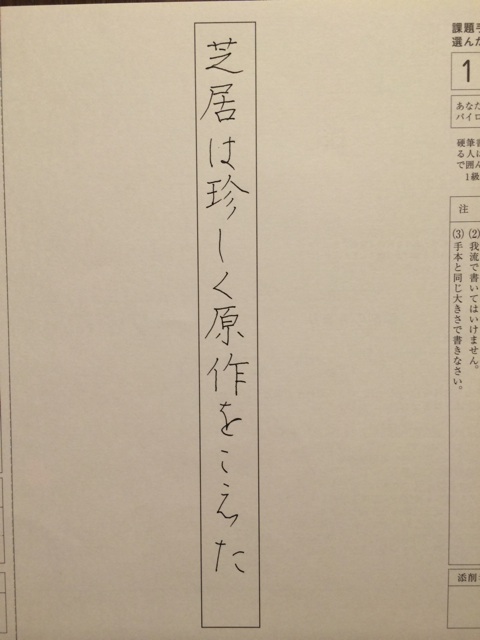 課題手
選んだ
1
あなた
パイロ
硬筆書
る人に
で囲ん
1級
注
(2)我流で書いてはいけません。
(3)手本と同じ大きさで書きなさい。
添削
芝居は珍しく原作をこえた